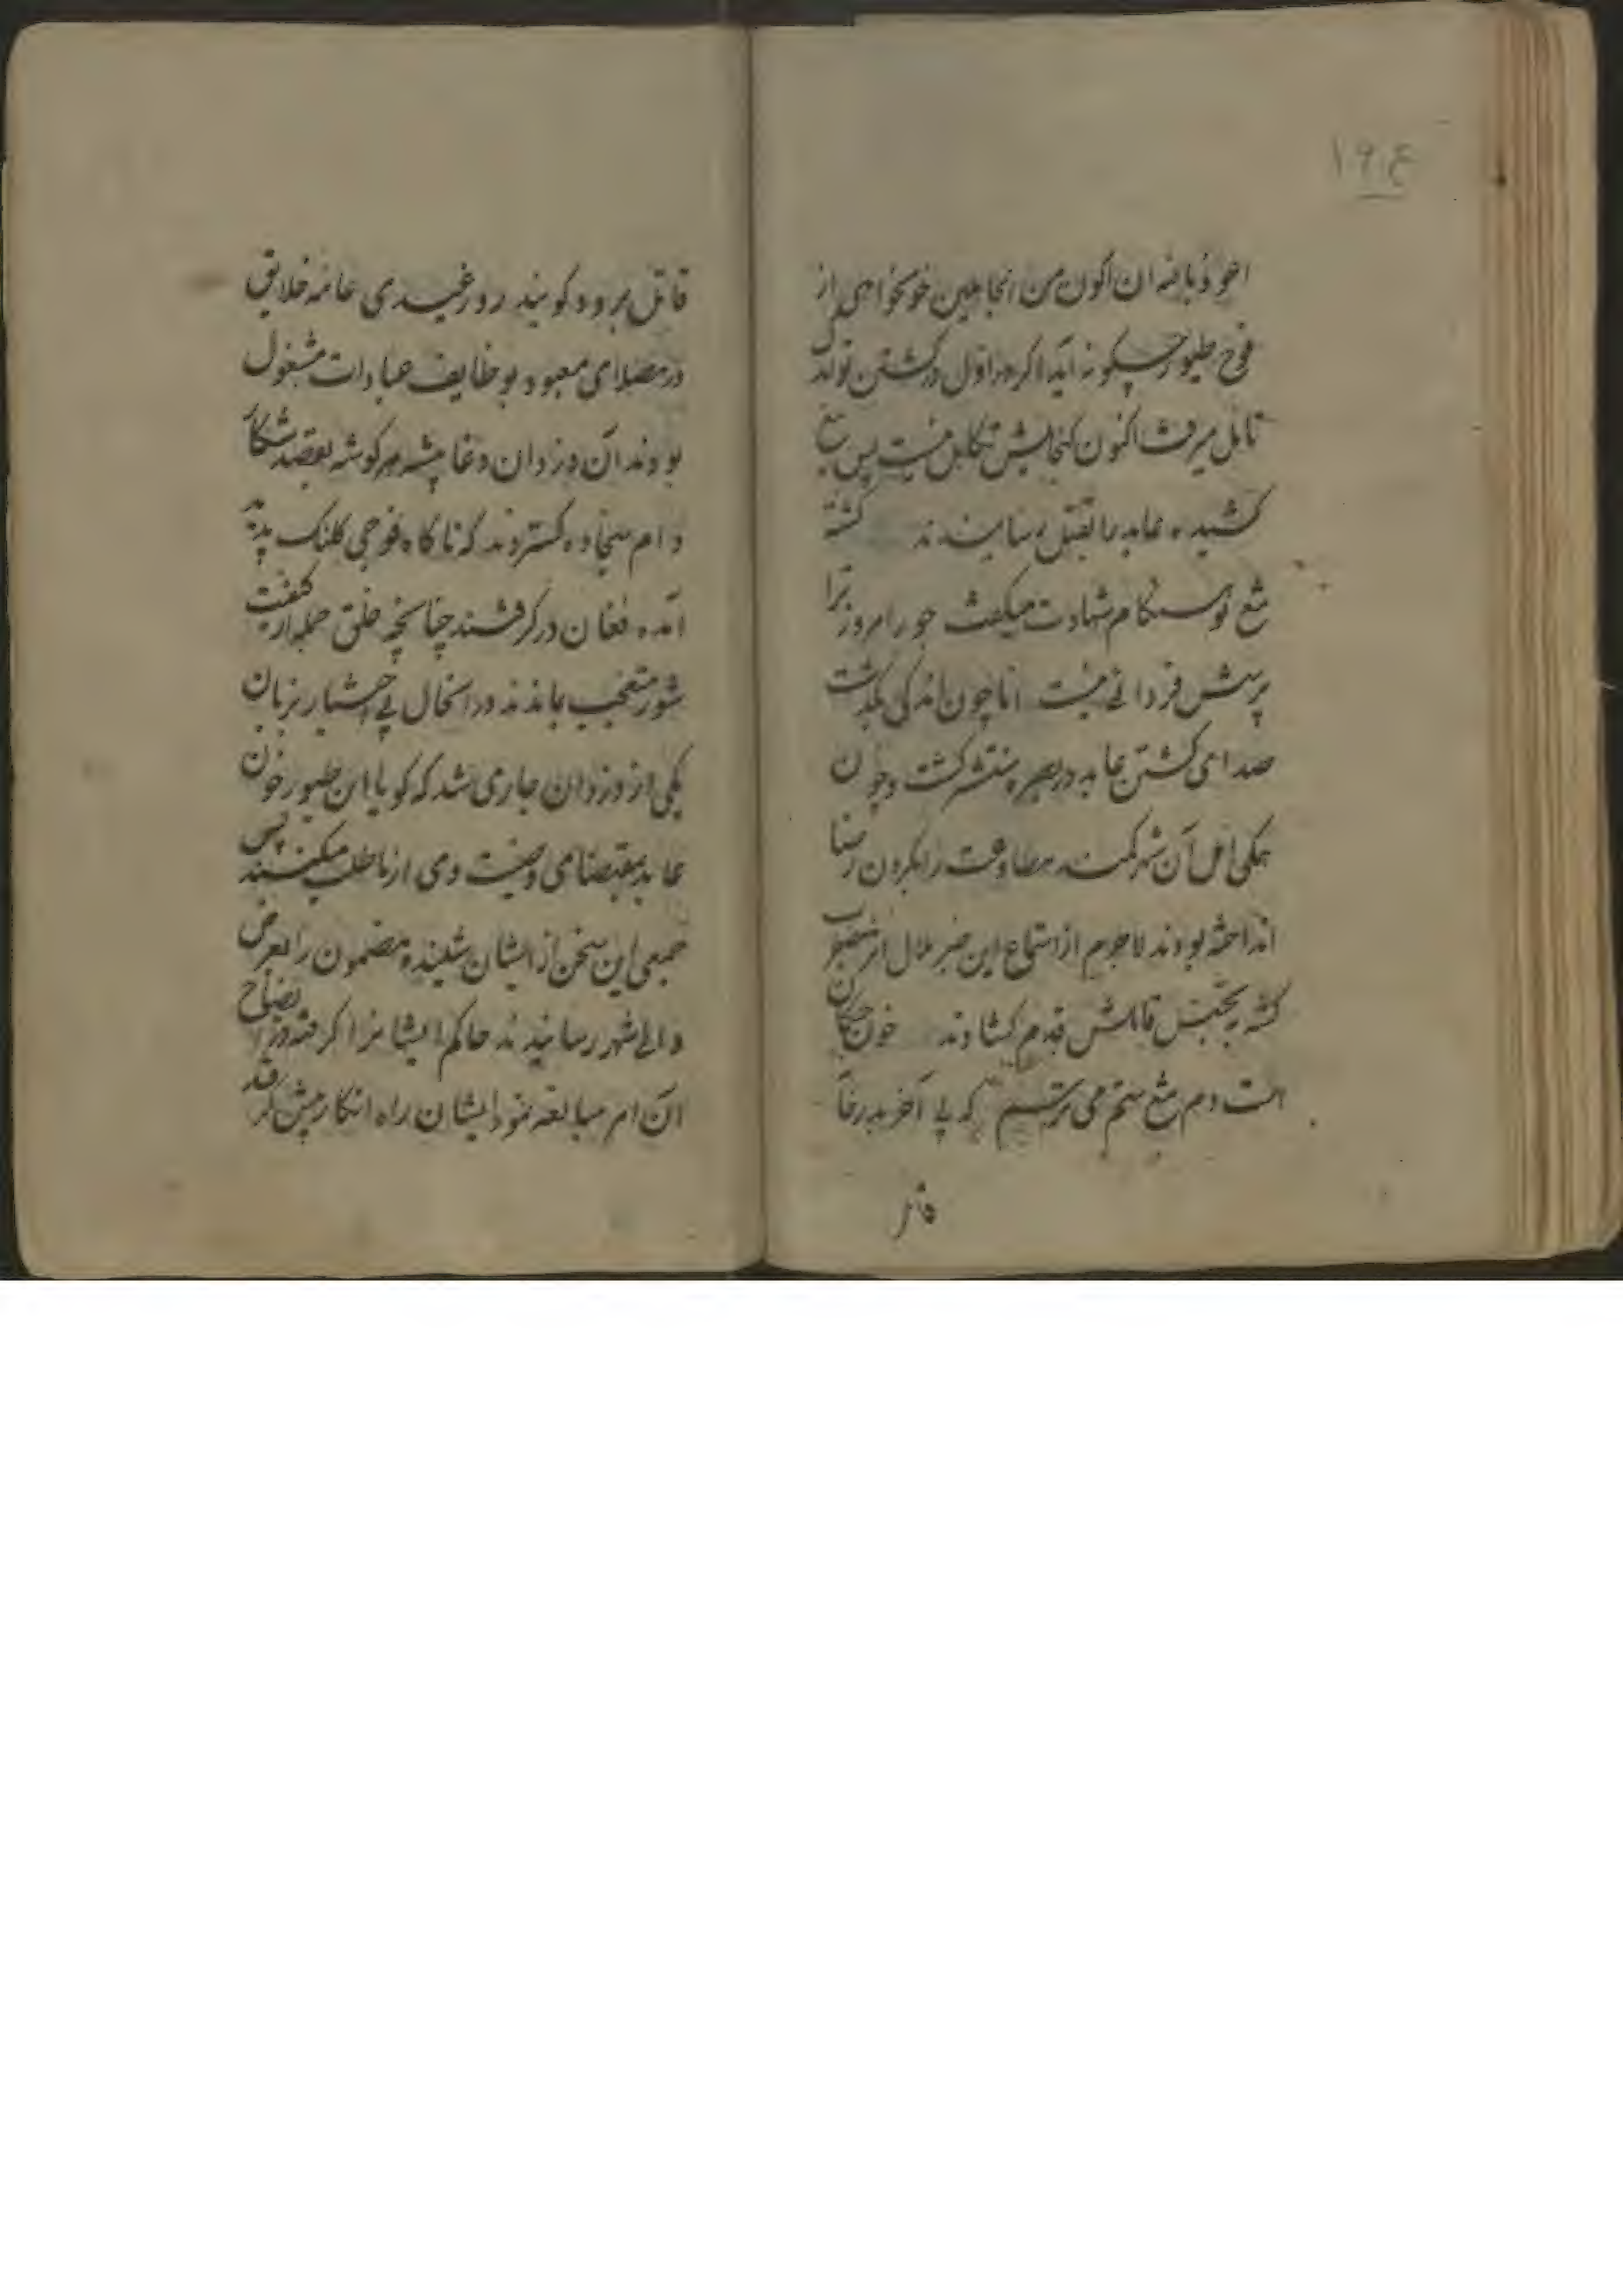 ۱۹۴
اعوذ بالله ان اکون من الجاهلین خونخواهی از
فوج طیور چگونه آید اگر در اول در کشتن تو اندک
تامل میرفت اکنون گنجایش تکاهل نیست پس تیغ
کشیده عابد را بقتل رسانیدند کشته
تیغ تو هنگام شهادت میگفت جور امروز ترا
پرسش فردائی نیست اما چون اندکی بگذشت
صدای کشتن عابد در شهر منتشر گشت و چون
همگی اهل آن شهر کمند مطاوعت را بگردن رضا
انداخته بودند لاجرم از استماع این خبر ملال اثر مضطرب
گشته به تجسس قاتلش قدم گشادند خون چکان
است دم تیغ ستم می ترسم که پی آخر بدر خانه
قاتل برود گویند روز عیدی عامه خلایق
در مصلای معبود بوظایف عبادات مشغول
بودند آن دزدان دغا پیشه هر گوشه بقصد شکار
دام سجاده گستردند که ناگاه فوجی کلنگ پدید
آمده فغان در گرفتند چنانچه خلق جمله از کیفیت
شور متعجب بماندند در انحال بی اختیار بزبان
یکی از دزدان جاری شد که گویا این طیور خون
عابد بمقتضای وصیت وی از ما طلب میکنند پس
جمعی این سخن از ایشان شنیده مضمون را بعرض
والی شهر رسانیدند حاکم ایشانرا گرفته در ایضاح
آن امر مبالغه نمود ایشان راه انکار پیش گرفتند